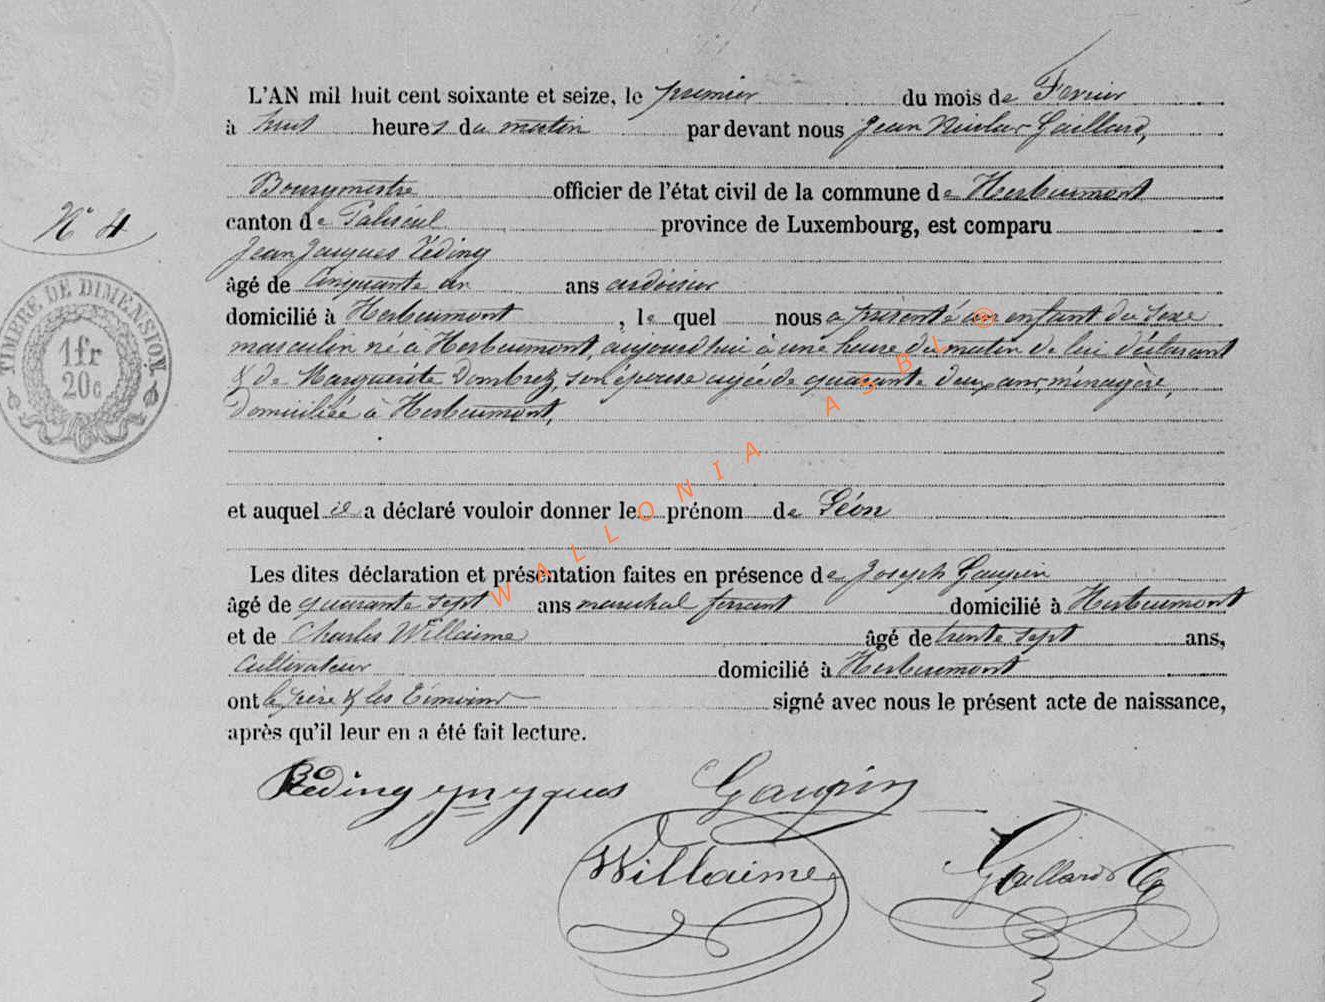 L'AN mil huit cent soixante et seize, le premier du mois de Fevrier
à huit heures du matin par devant nous Jean Nicolas Gaillard,
Bourgmestre officier de l'état civil de la commune de Herbeumont
N° 4
canton de Paliseul province de Luxembourg, est comparu
Jean Jacques Réding
âgé de Cinquante un ans ardoisier
domicilié à Herbeumont, lequel nous a présenté un enfant du sexe
masculin né à Herbeumont, aujourd'hui à une heure du matin de lui déclarant
& de Marguerite Dombrez, son épouse agée de quarante deux ans, ménagère,
domiciliée à Herbeumont,
TIMBRE DE DIMENSION.
1fr
20c
et auquel il a déclaré vouloir donner le prénom de Léon
Les dites déclaration et présentation faites en présence de Joseph Gaupin
âgé de quarante sept ans marechal ferrant domicilié à Herbeumont
et de Charles Willaime âgé de trente sept ans,
Cultivateur domicilié à Herbeumont
ont le père & les témoins signé avec nous le présent acte de naissance,
après qu'il leur en a été fait lecture.
Réding Gaupin
Willaime Gaillard
WALLONIA ASBL ®